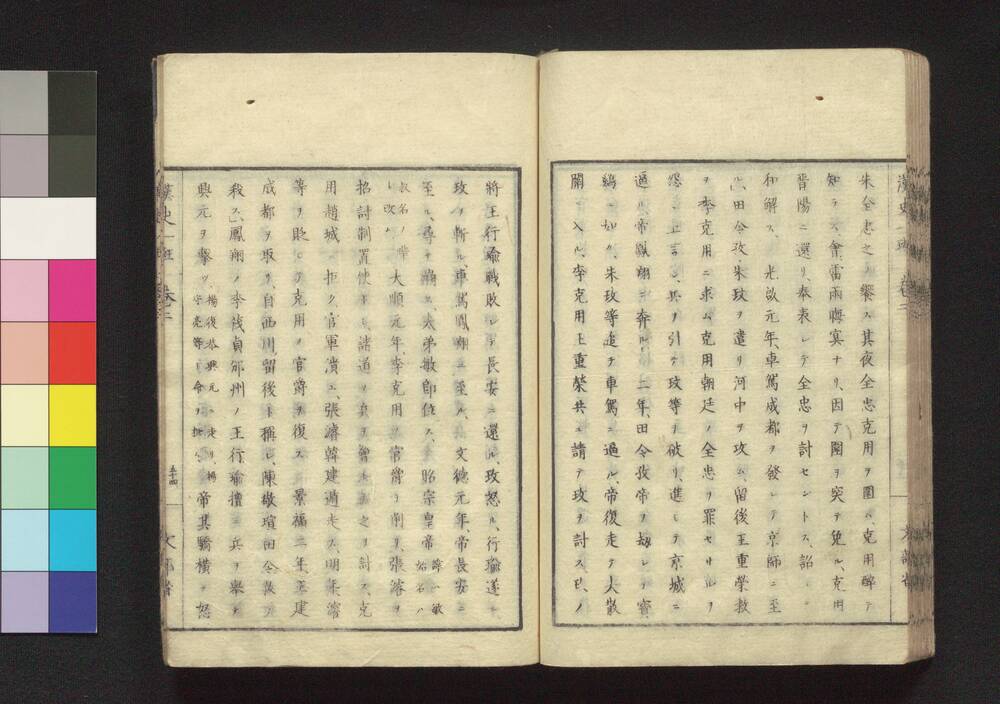 朱全忠之ヲ饗ス其夜全忠克用ヲ圍ム克用醉テ
知ラス會雷雨晦冥ナリ因テ圍ヲ突テ免ル克用
晉陽ニ還リ奉表シテ全忠ヲ討セントス詔シテ
和解ス、光啟元年車駕成都ヲ發シテ京師ニ至
ル、田令孜朱玫ヲ遣リ河中ヲ攻ム留後王重榮救
ヲ李克用ニ求ム克用朝廷ノ全忠ヲ罪セサルヲ
怨ミ
過ル帝鳳翔ニ奔ル、二年田令孜帝ヲ劫シテ寶
雞ニ如ク、朱玫等追テ車駕ニ逼ル、帝復走テ大散
關ニ入ル、李克用王重榮共ニ請テ玫ヲ討ス玫ノ
將王行瑜戰敗レテ長安ニ還ル、玫怒ル、行瑜遂ニ
玫ヲ斬ル車駕鳳翔ニ至ル、文德元年帝長安ニ
至ル、尋テ崩ス、太弟敏卽位ス、昭宗皇帝 諱ハ敏始名ハ
傑名ノ曄ト改ム 大順元年李克用ノ官爵ヲ削リ、張濬ヲ
招討制置使トシ諸道ノ兵ヲ會シ之ヲ討ス、克
用趙城ニ拒ク官軍潰ユ、張濬韓建遁走ス、明年濬
等ヲ貶シテ克用ノ官爵ヲ復ス、景福二年王建
成都ヲ取リ、自西川留後ト稱シ、陳敬瑄田令孜ヲ
殺ス、鳳翔ノ李茂貞邠州ノ王行瑜擅ニ兵ヲ舉テ
興元ヲ擊ツ、楊復恭興元ニ走リ、楊守亮等ト命ヲ拒ム 帝其驕橫ヲ怒
漢史一班 卷二
五十四
文部省